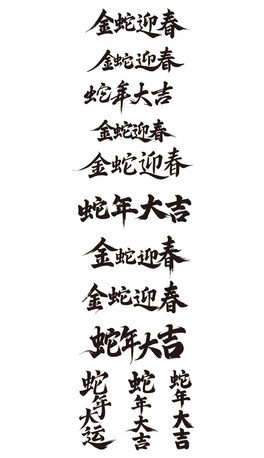 金蛇迎春
金蛇迎春
蛇年大吉
金蛇迎春
金蛇迎春
蛇年大吉
金蛇迎春
金蛇迎春
蛇年大吉
蛇年大运
蛇年大吉
蛇年大吉